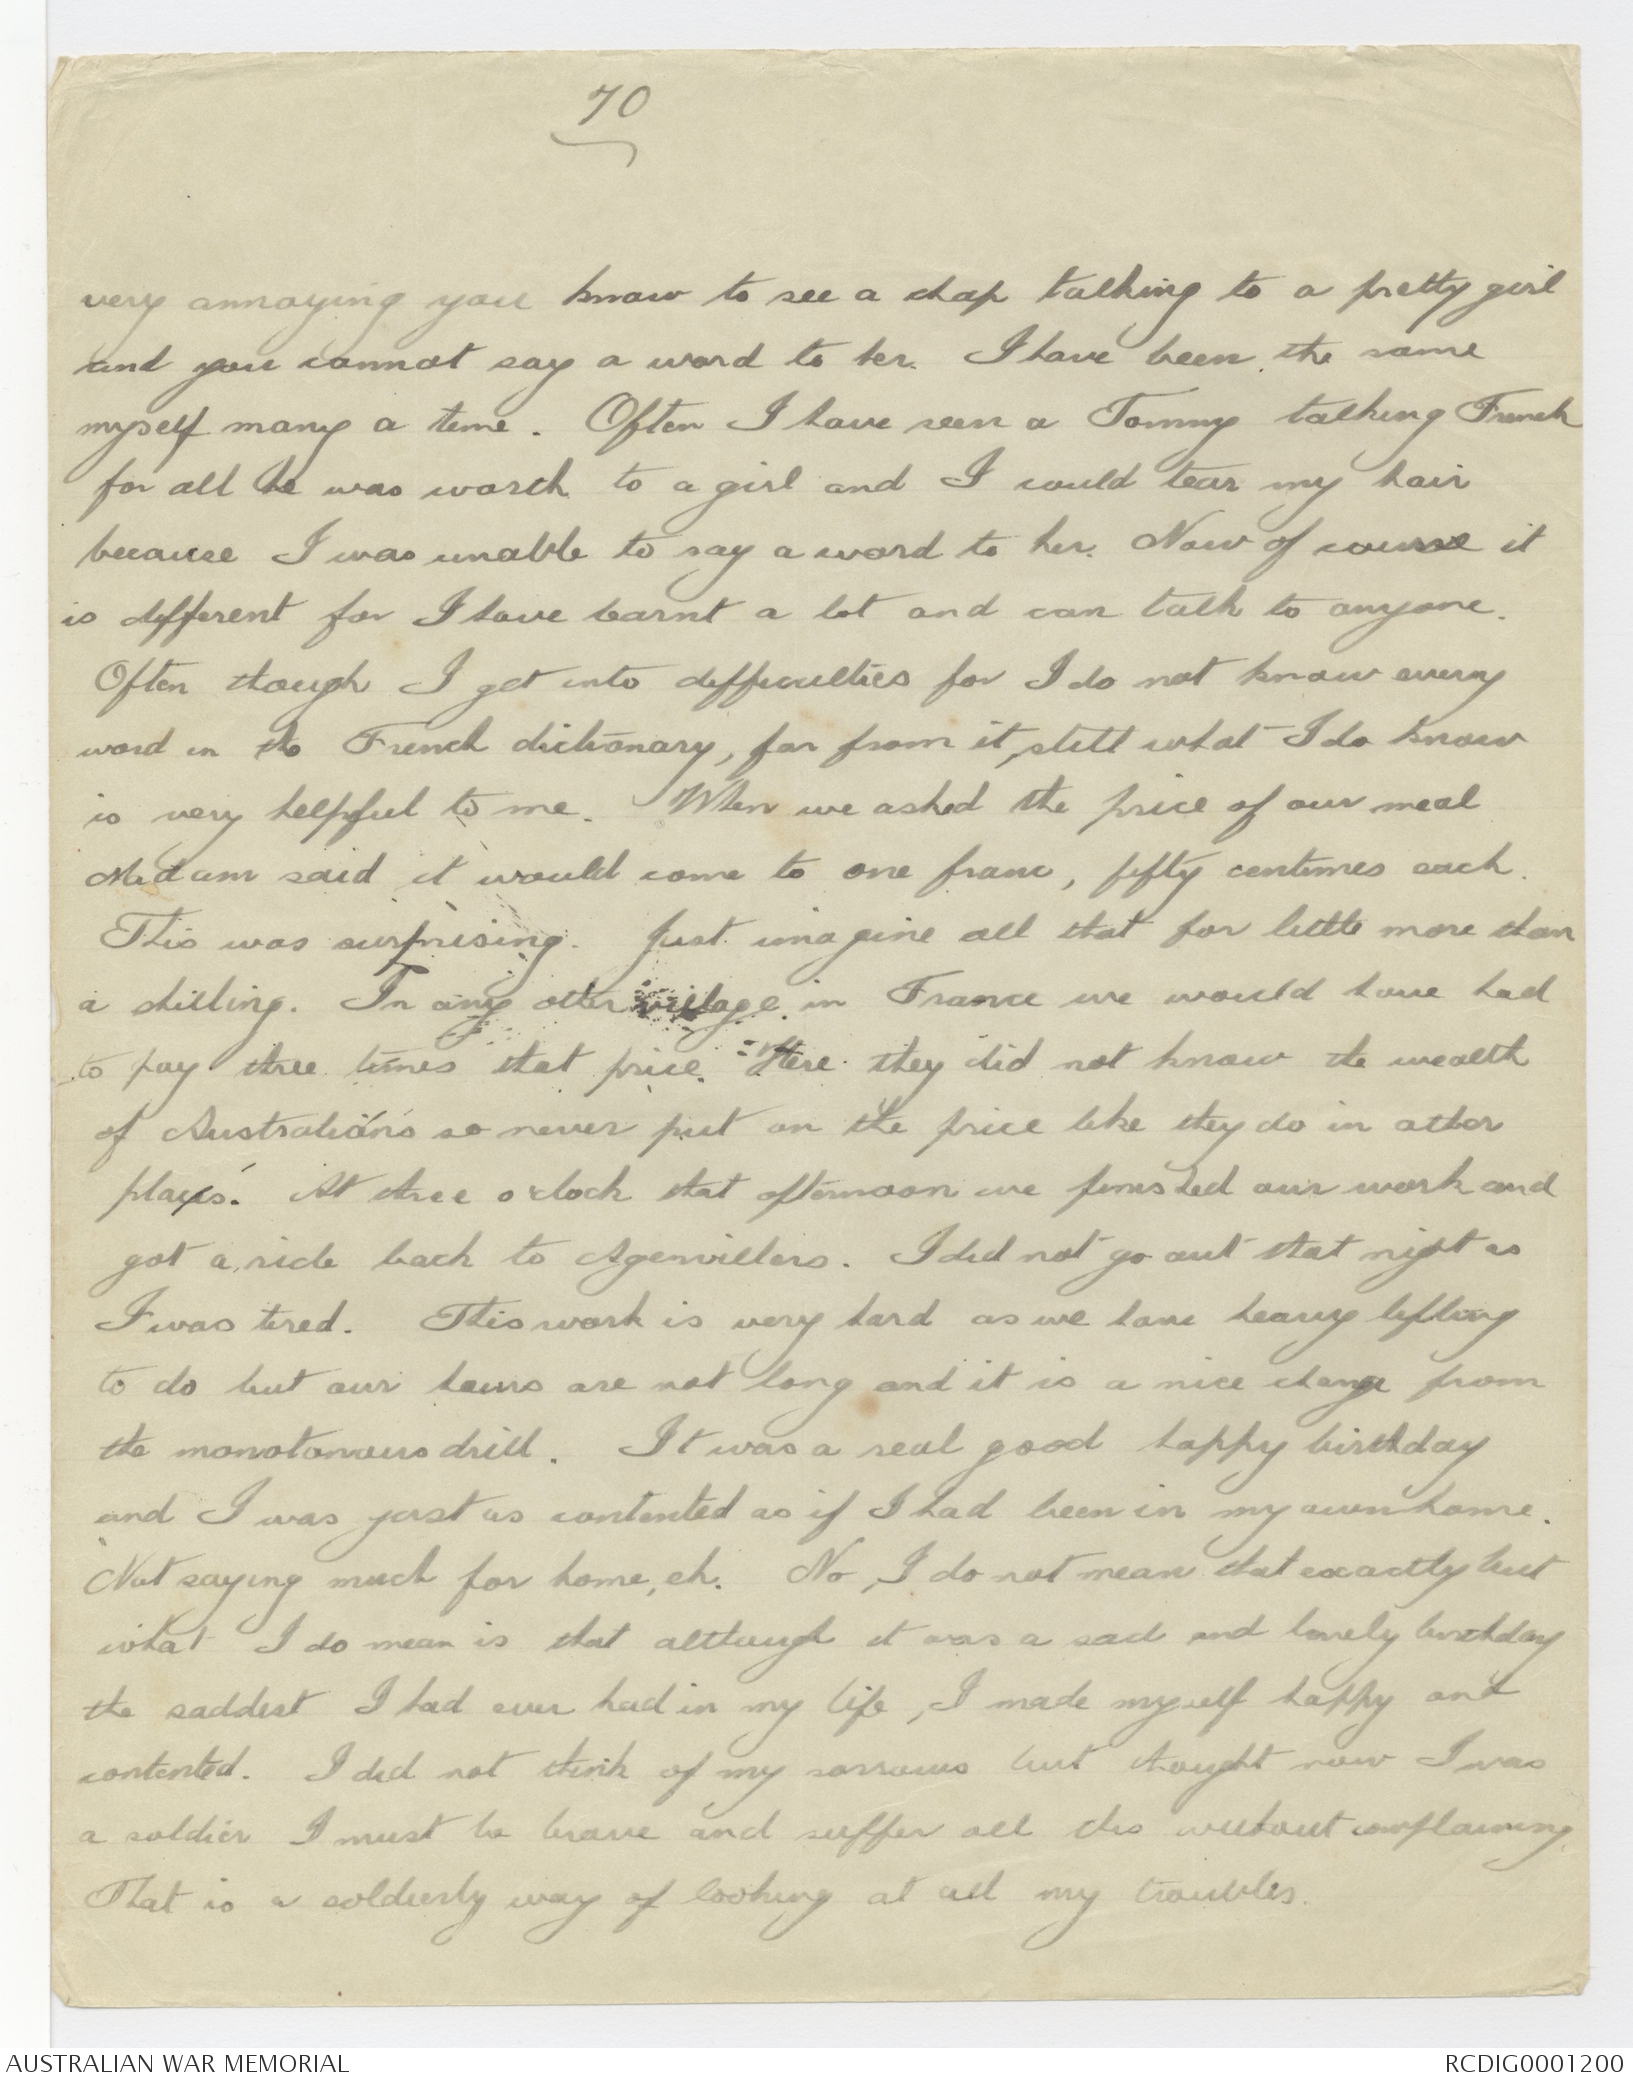 70
very annoying you know to see a chap talking to a pretty girl
and you cannot say a word to her. I have been the same
myself many a time. Often I have seen a Tommy talking French
for all he was worth to a girl and I could tear my hair
because I was unable to say a word to her. Now of course it
is different for I have learnt a lot and can talk to anyone.
Often though I get into difficulties for I do not know every
word in the French dictionary, far from it, still what I do know
is very helpful to me. When we asked the price of our meal
Madam said it would come to one franc, fifty centimes each.
This was surprising. Just imagine all that for little more than
a shilling. In any other village in France we would have had
to pay three times that price. Here they did not know the wealth
of Australians so never put on the price like they do in other
places. At three o'clock that afternoon we finished our work and
got a ride back to Agenvillers. I did not go out that night as
I was tired. This work is very hard as we have heavy lifting
to do but our hours are not long and it is a nice change from
the monotonous drill. It was a real good happy birthday
and I was just as contented as if I had been in my own home.
Not saying much for home, eh. No, I do not mean that exactly but
what I do mean is that although it was a sad and lonely birthday
the saddest I had ever had in my life, I made myself happy and
contented. I did not think of my sorrows but thought now I was
a soldier I must be brave and suffer all this without complaining.
That is a soldierly way of looking at all my troubles.
AUSTRALIAN WAR MEMORIAL
RCDIG0001200